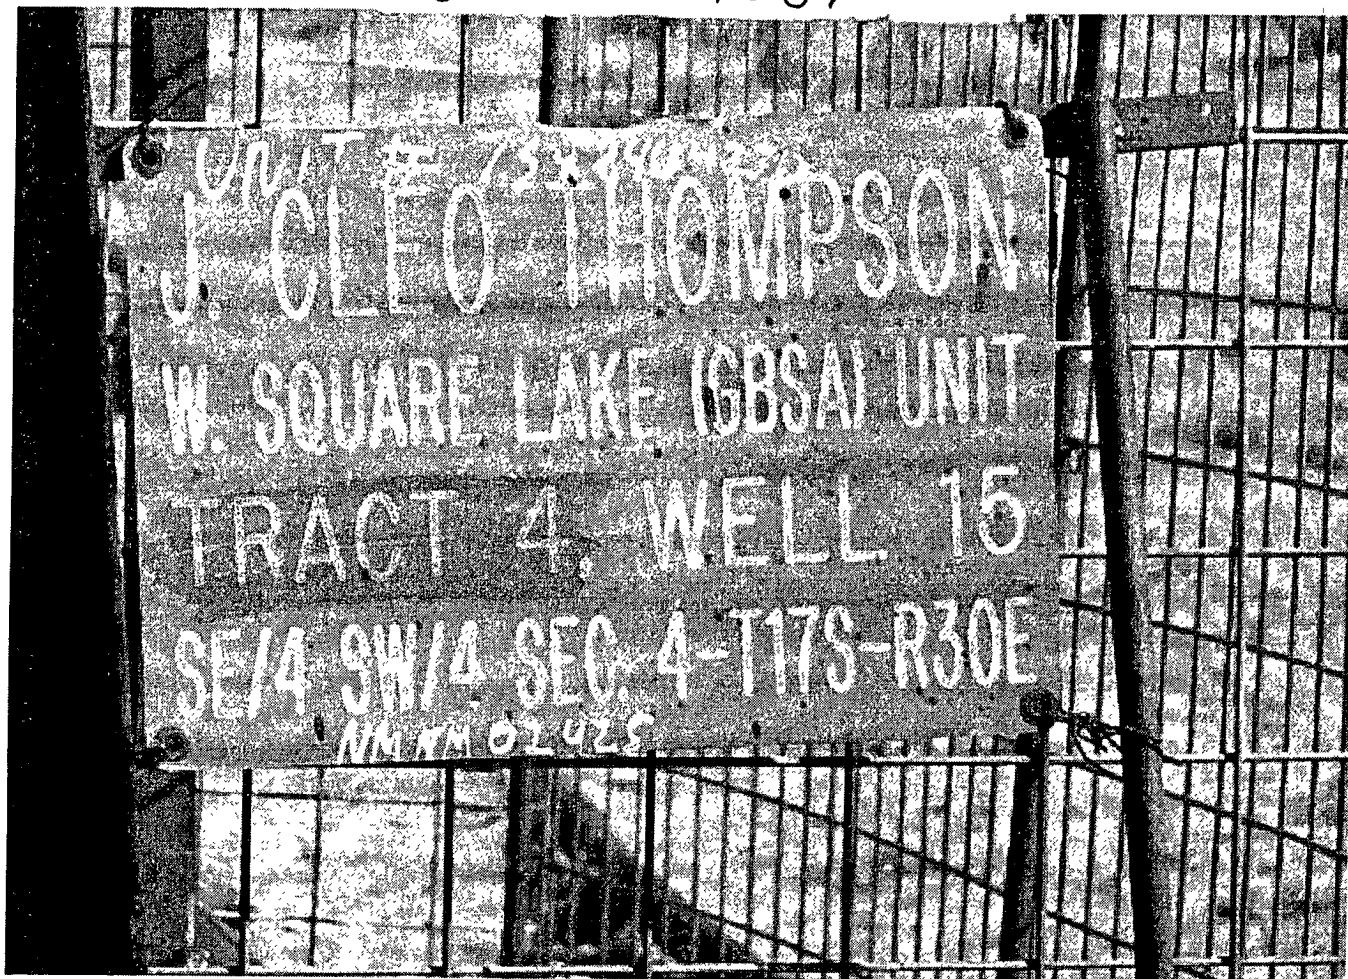 UNIT #
J. CLEO THOMPSON
W. SQUARE LAKE (GBSA) UNIT
TRACT 4, WELL 15
SE/4 SW/4 SEC. 4-T17S-R30E
NMNM 02425